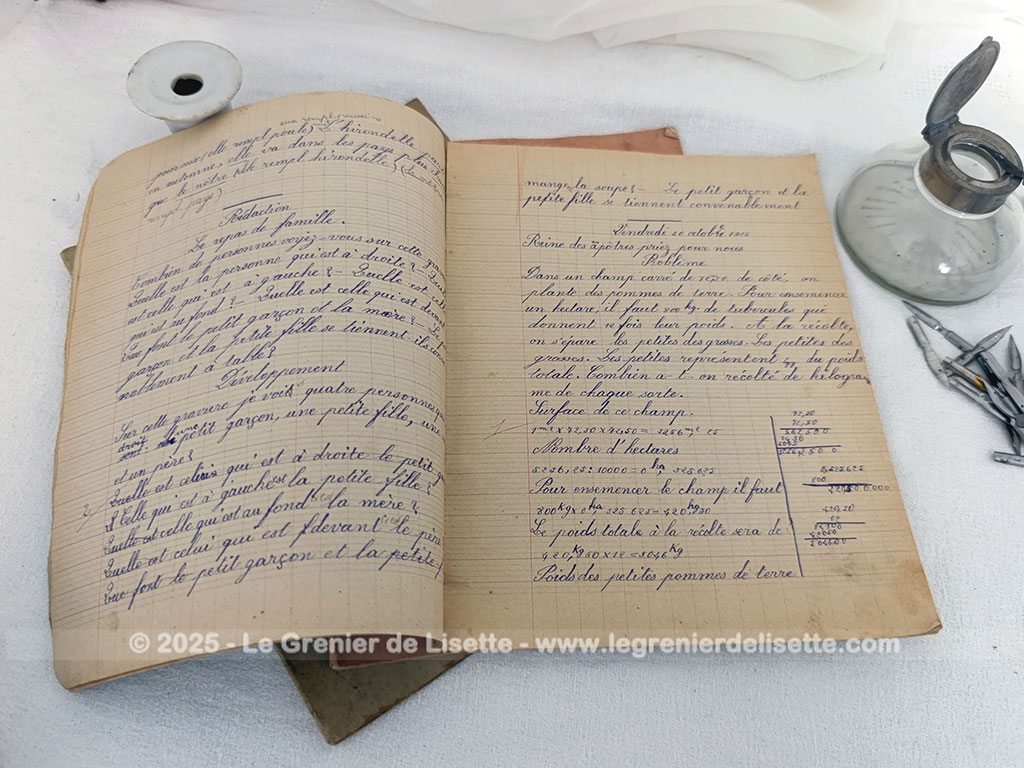 eux rempl poussins
pour eux (elle rempl poule) L'hirondelle
en automne, elle va dans les pays plus
que le nôtre (elle rempl hirondelle)
rempl pays)
Rédaction
Le repas de famille.
Combien de personnes voyez-vous sur cette
Quelle est la personne qui est à droite ? - Quelle
est celle qui est à gauche ? - Quelle est celle
qui est au fond ? - Quelle est celle qui est devant
Que font le petit garçon et la mère ? - Le
garçon et la petite fille se tiennent-ils
nablement à table ?
Développement
Sur cette gravure je vois quatre personnes
sont: un petit garçon, une petite fille, une
et un père ?
Quelle est celui qui est à droite le petit
A Celle qui est à gauche est la petite fille ?
Quelle est celle qui est au fond est la mère ?
Quelle est celui qui est devant est le père
Que font le petit garçon et la petite
mange la soupe ? - Le petit garçon et la
petite fille se tiennent convenablement
Vendredi 20 octobre
Reine des apôtres priez pour nous
Problème
Dans un champ carré de 72,50 de côté, on
plante des pommes de terre. Pour ensemencer
un hectare, il faut 800 kg de tubercules que
donnent 12 fois leur poids. A la récolte,
on s'épare les petites des grosses. Les petites des
grosses. Les petites représentent du poids
totale. Combien a-t-on récolté de kilogram
me de chaque sorte.
Surface de ce champ.
1 m2 x 72,50 x 72,50 = 5256 m2 25
Nombre d'hectares
5256,25 : 10000 = 0 ha, 525625
Pour ensemencer le champ il faut
800 kg x 0 ha 525625 = 420,kg50
Le poids totale à la récolte sera de
420,kg50 x 12 = 5046 kg
Poids des petites pommes de terre
72,50
72,50
0,525625
800
420,50
12
84100
42050
504600
© 2025 - Le Grenier de Lisette - www.legrenierdelisette.com